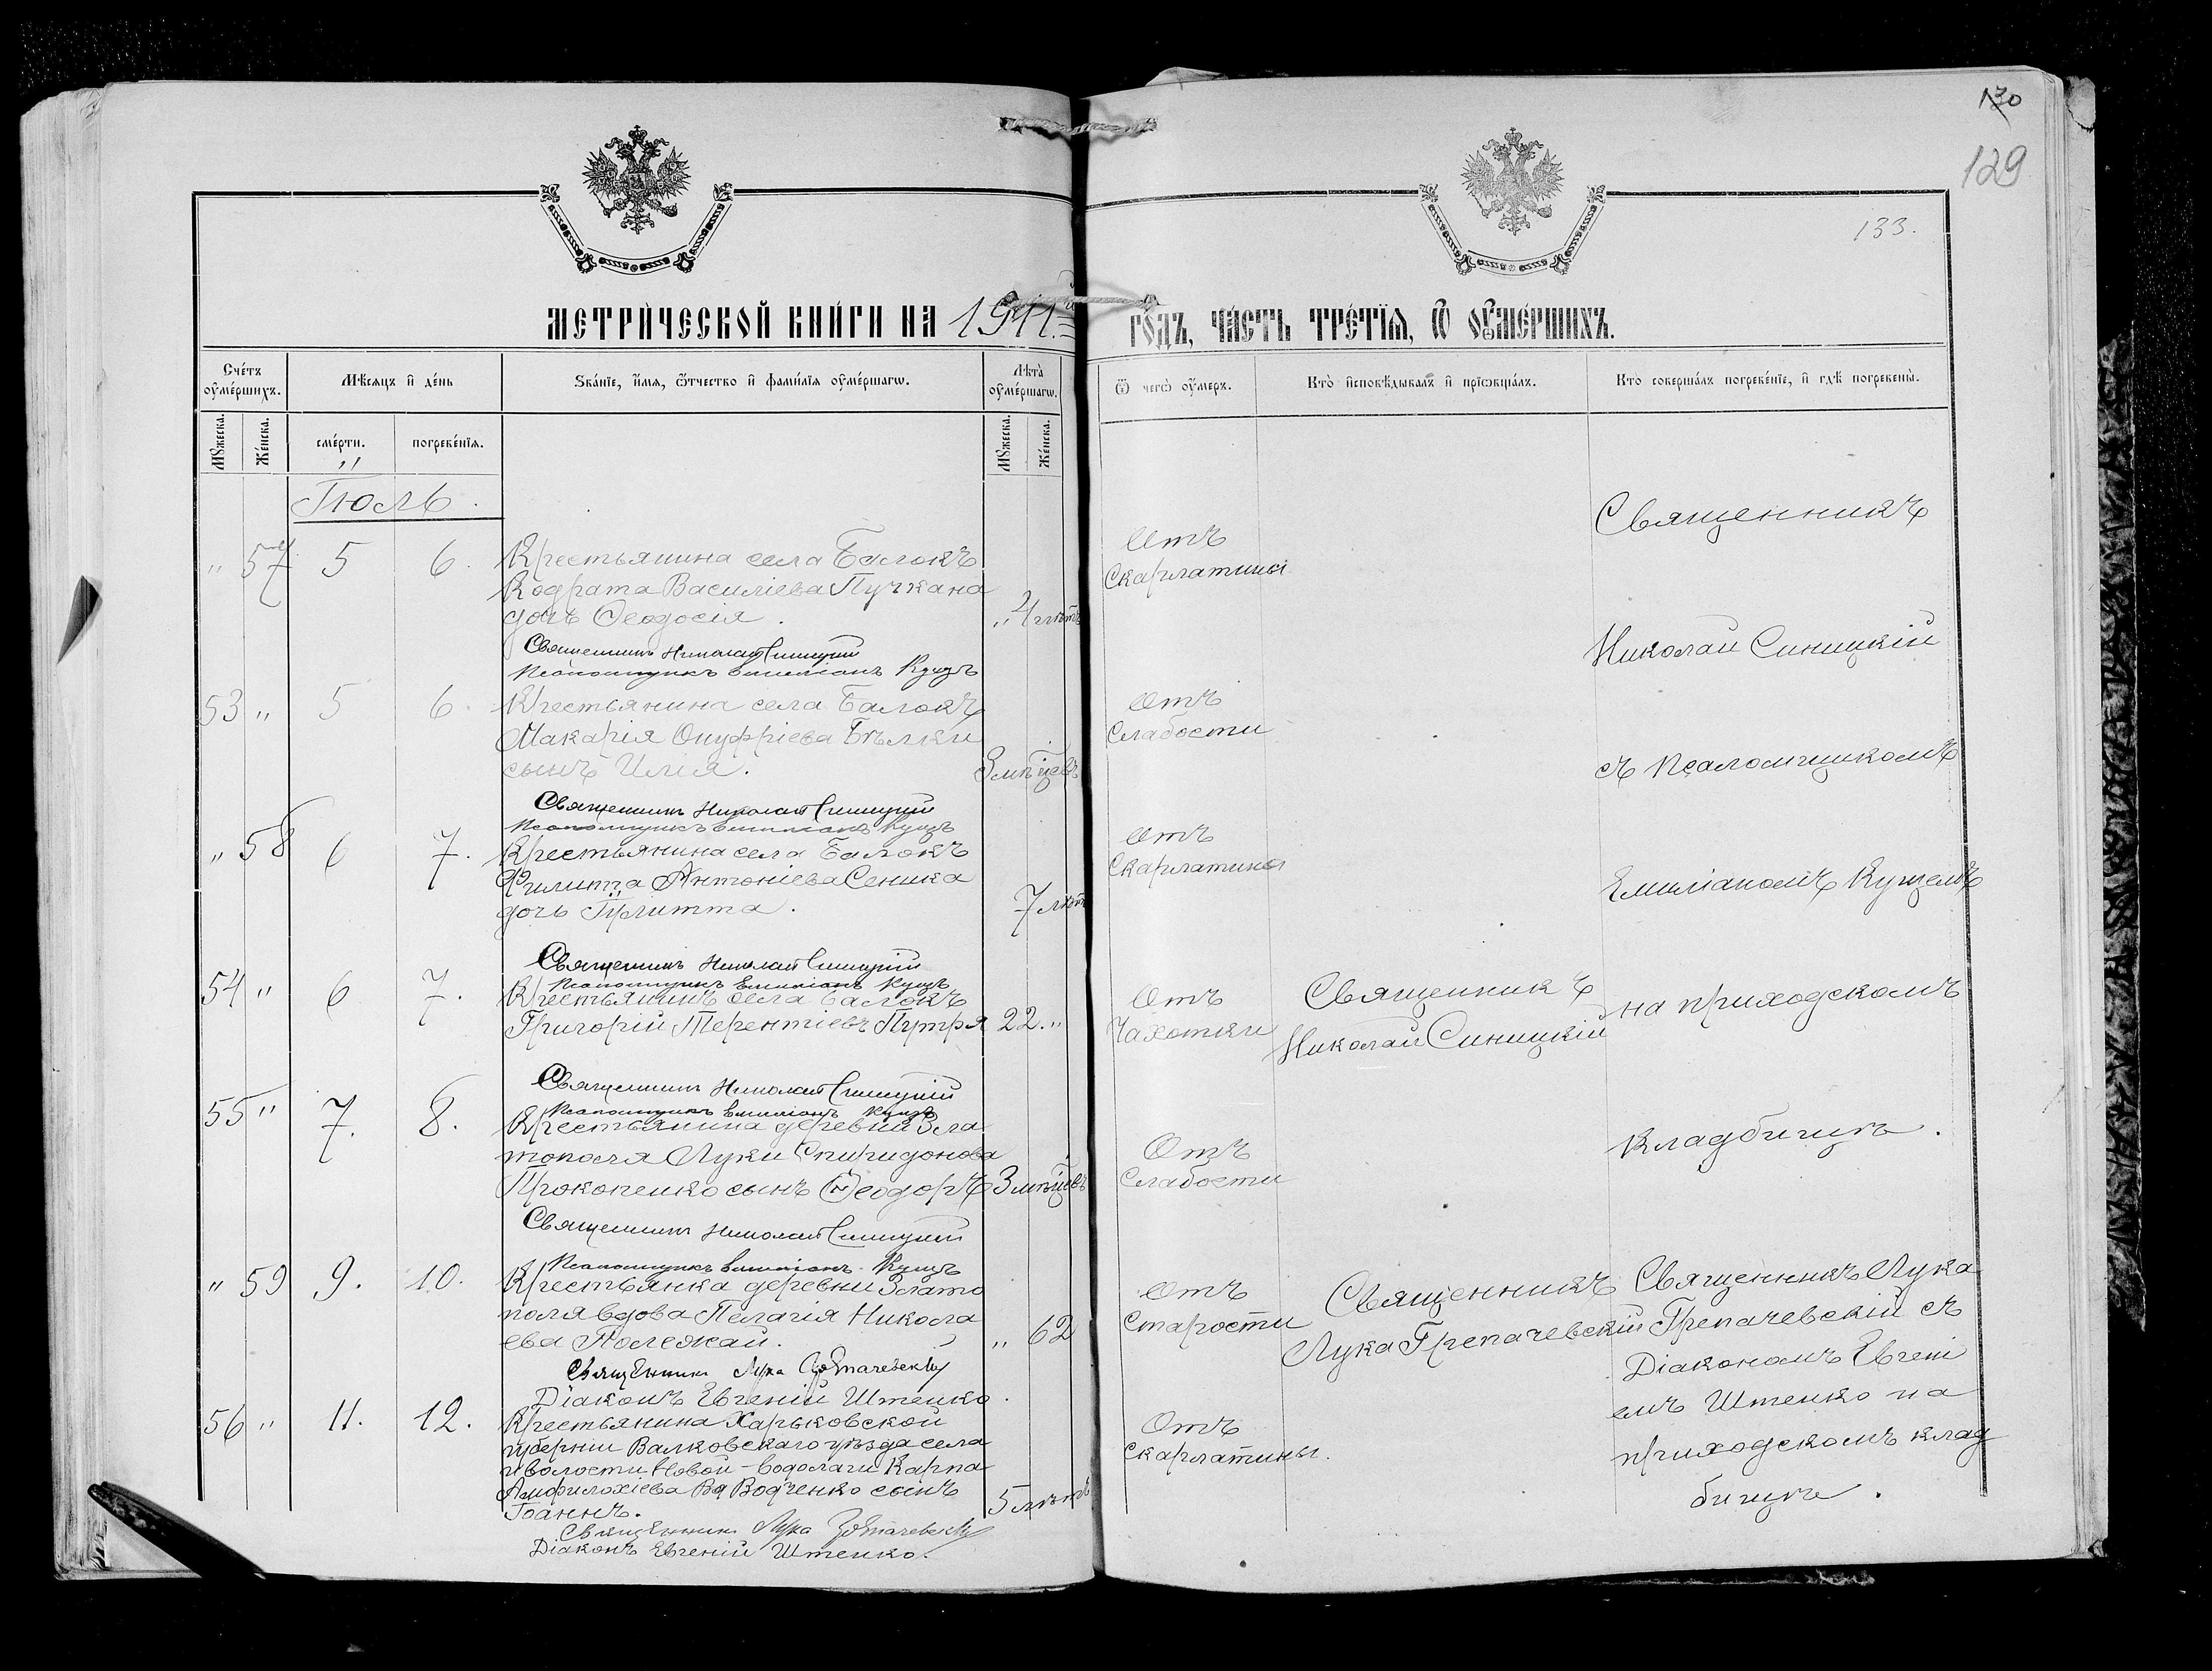 130
129
133.
МЕТРИЧЕСКОЙ КНИГИ НА 1911й ГОДЪ, ЧАСТЬ ТРЕТІЯ, Ѿ ОУМЕРШИХЪ.
Счетъ оумершихъ.
Мѣсяцъ и день
Званіе, имя, ѿчество и фамилія оумершагѡ.
Лѣта оумершагѡ.
Ѿ чегѡ оумеръ.
Кто исповѣдывалъ и пріѡбщалъ.
Кто совершалъ погребеніе, и гдѣ погребены.
Мужеска.
Женска.
смерти.
погребенія.
Мужеска.
Женска.
Іюль.
" 57 5 6.
Крестьянина села Балокъ
Кодрата Василіева Пучкана
дочь Ѳеодосія.
" 4 лѣтъ
Отъ
Скарлатины
Священникъ Николай Синицкій
Псаломщикъ Емиліанъ Куцъ
53 " 5 6.
Крестьянина села Балокъ
Макарія Онуфріева Бѣлки
сынъ Илія.
3 мѣсцевъ
Отъ
Слабости
Священникъ Николай Синицкій
Псаломщикъ Емиліанъ Куцъ
" 58 6 7.
Крестьянина села Балокъ
Филиппа Антоніева Сеника
дочь Іулитта.
7 лѣтъ
Отъ
Скарлатины
Священникъ Николай Синицкій
Псаломщикъ Емиліанъ Куцъ
54 " 6 7.
Крестьянинъ села Балокъ
Григорій Терентіевъ Путря
22. "
Отъ
Чахотки
Священникъ
Николай Синицкій
Священникъ Николай Синицкій
Псаломщикъ Емиліанъ Куцъ
55 " 7. 8.
Крестьянина деревни Зла
тополя Луки Спиридонова
Прокопенко сынъ Ѳеодоръ
3 мѣсцевъ
Отъ
Слабости
Священникъ
Николай Синицкій
съ Псаломщикомъ
Емиліаномъ Куцемъ
на приходскомъ
кладбищѣ.
Священникъ Николай Синицкій
Псаломщикъ Емиліанъ Куцъ
" 59 9. 10.
Крестьянка деревни Злато
поля вдова Пелагія Никола
ева Полежай.
" 62
Отъ
Старости
Священникъ
Лука Грепачевскій
Священникъ Лука
Грепачевскій съ
Діакономъ Евгені
емъ Штенко на
приходскомъ клад
бищѣ.
Священникъ Лука Грепачевскій
Діаконъ Евгеній Штенко.
56 " 11. 12.
Крестьянина Харьковской
губерніи Валковскаго уѣзда села
и волости Новой-Водолаги Карпа
Амфилохіева Водченко сынъ
Іоаннъ.
5 лѣтъ
Отъ
скарлатины.
Священникъ Лука Грепачевскій
Діаконъ Евгеній Штенко.